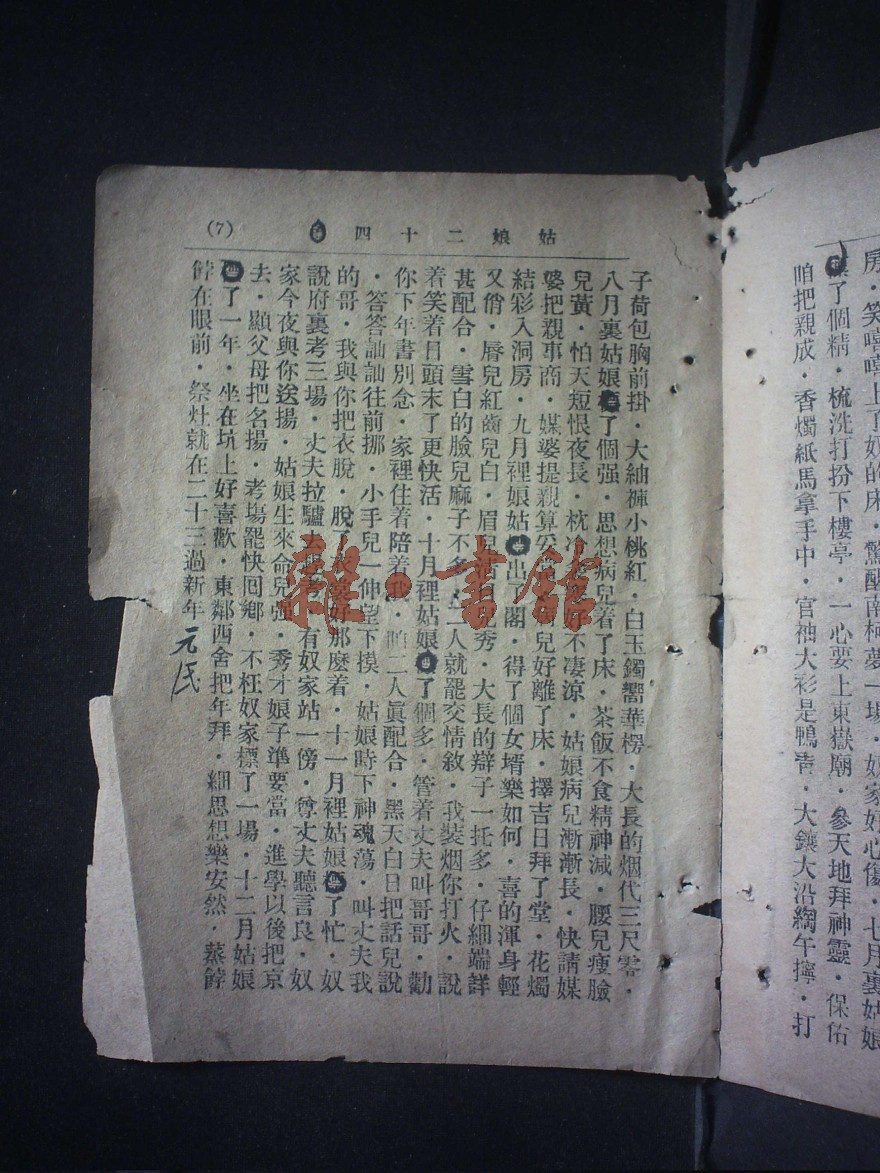 房·笑嘻嘻上了奴的床·驚醒南柯夢一場·奴家好心傷·七月裏姑娘
了個精·梳洗打扮下樓亭·一心要上東嶽廟·參天地拜神靈·保佑
咱把親成·香燭紙馬拿手中·官袖大衫是鴨青·大鑲大沿縐午擰·打
姑娘二十四
(7)
子荷包胸前掛·大紬褲小桃紅·白玉鐲嚮華楞·大長的烟代三尺零·
八月裏姑娘了個强·思想病兒着了床·茶飯不食精神減·腰兒瘦臉
兒黃·怕天短恨夜長·枕冷好不凄涼·姑娘病兒漸漸長·快請媒
婆把親事商·媒婆提親算兒好離了床·擇吉日拜了堂·花燭
結彩入洞房·九月裡娘姑出了閣·得了個女壻樂如何·喜的渾身輕
又俏·唇兒紅齒兒白·眉兒活兒秀·大長的辮子一托多·仔細端詳
甚配合·雪白的臉兒麻子不多·二人就罷交情敘·我裝烟你打火·說
着笑着日頭末了更快活·十月裡姑娘了個多·管着丈夫叫哥哥·勸
你下年書別念·家裡住着陪着我·咱二人眞配合·黑天白日把話兒說
·答答訕訕往前挪·小手兒一伸望下摸 姑娘時下神魂蕩·叫丈夫我
的哥·我與你把衣脫·脫了衣裳好那麼着·十一月裡姑娘了忙·奴
說府裏考三場·丈夫拉驢去有奴家站一傍·尊丈夫聽言良·奴
家今夜與你送揚·姑娘生來命兒强·秀才娘子準要當·進學以後把京
去·顯父母把名揚·考塲罷快囘鄉·不枉奴家標了一場·十二月姑娘
了一年·坐在坑上好喜歡·東鄰西舍把年拜·細思想樂安然·蒸餑
餑在眼前·祭灶就在二十三過新年
元民
雜·書館